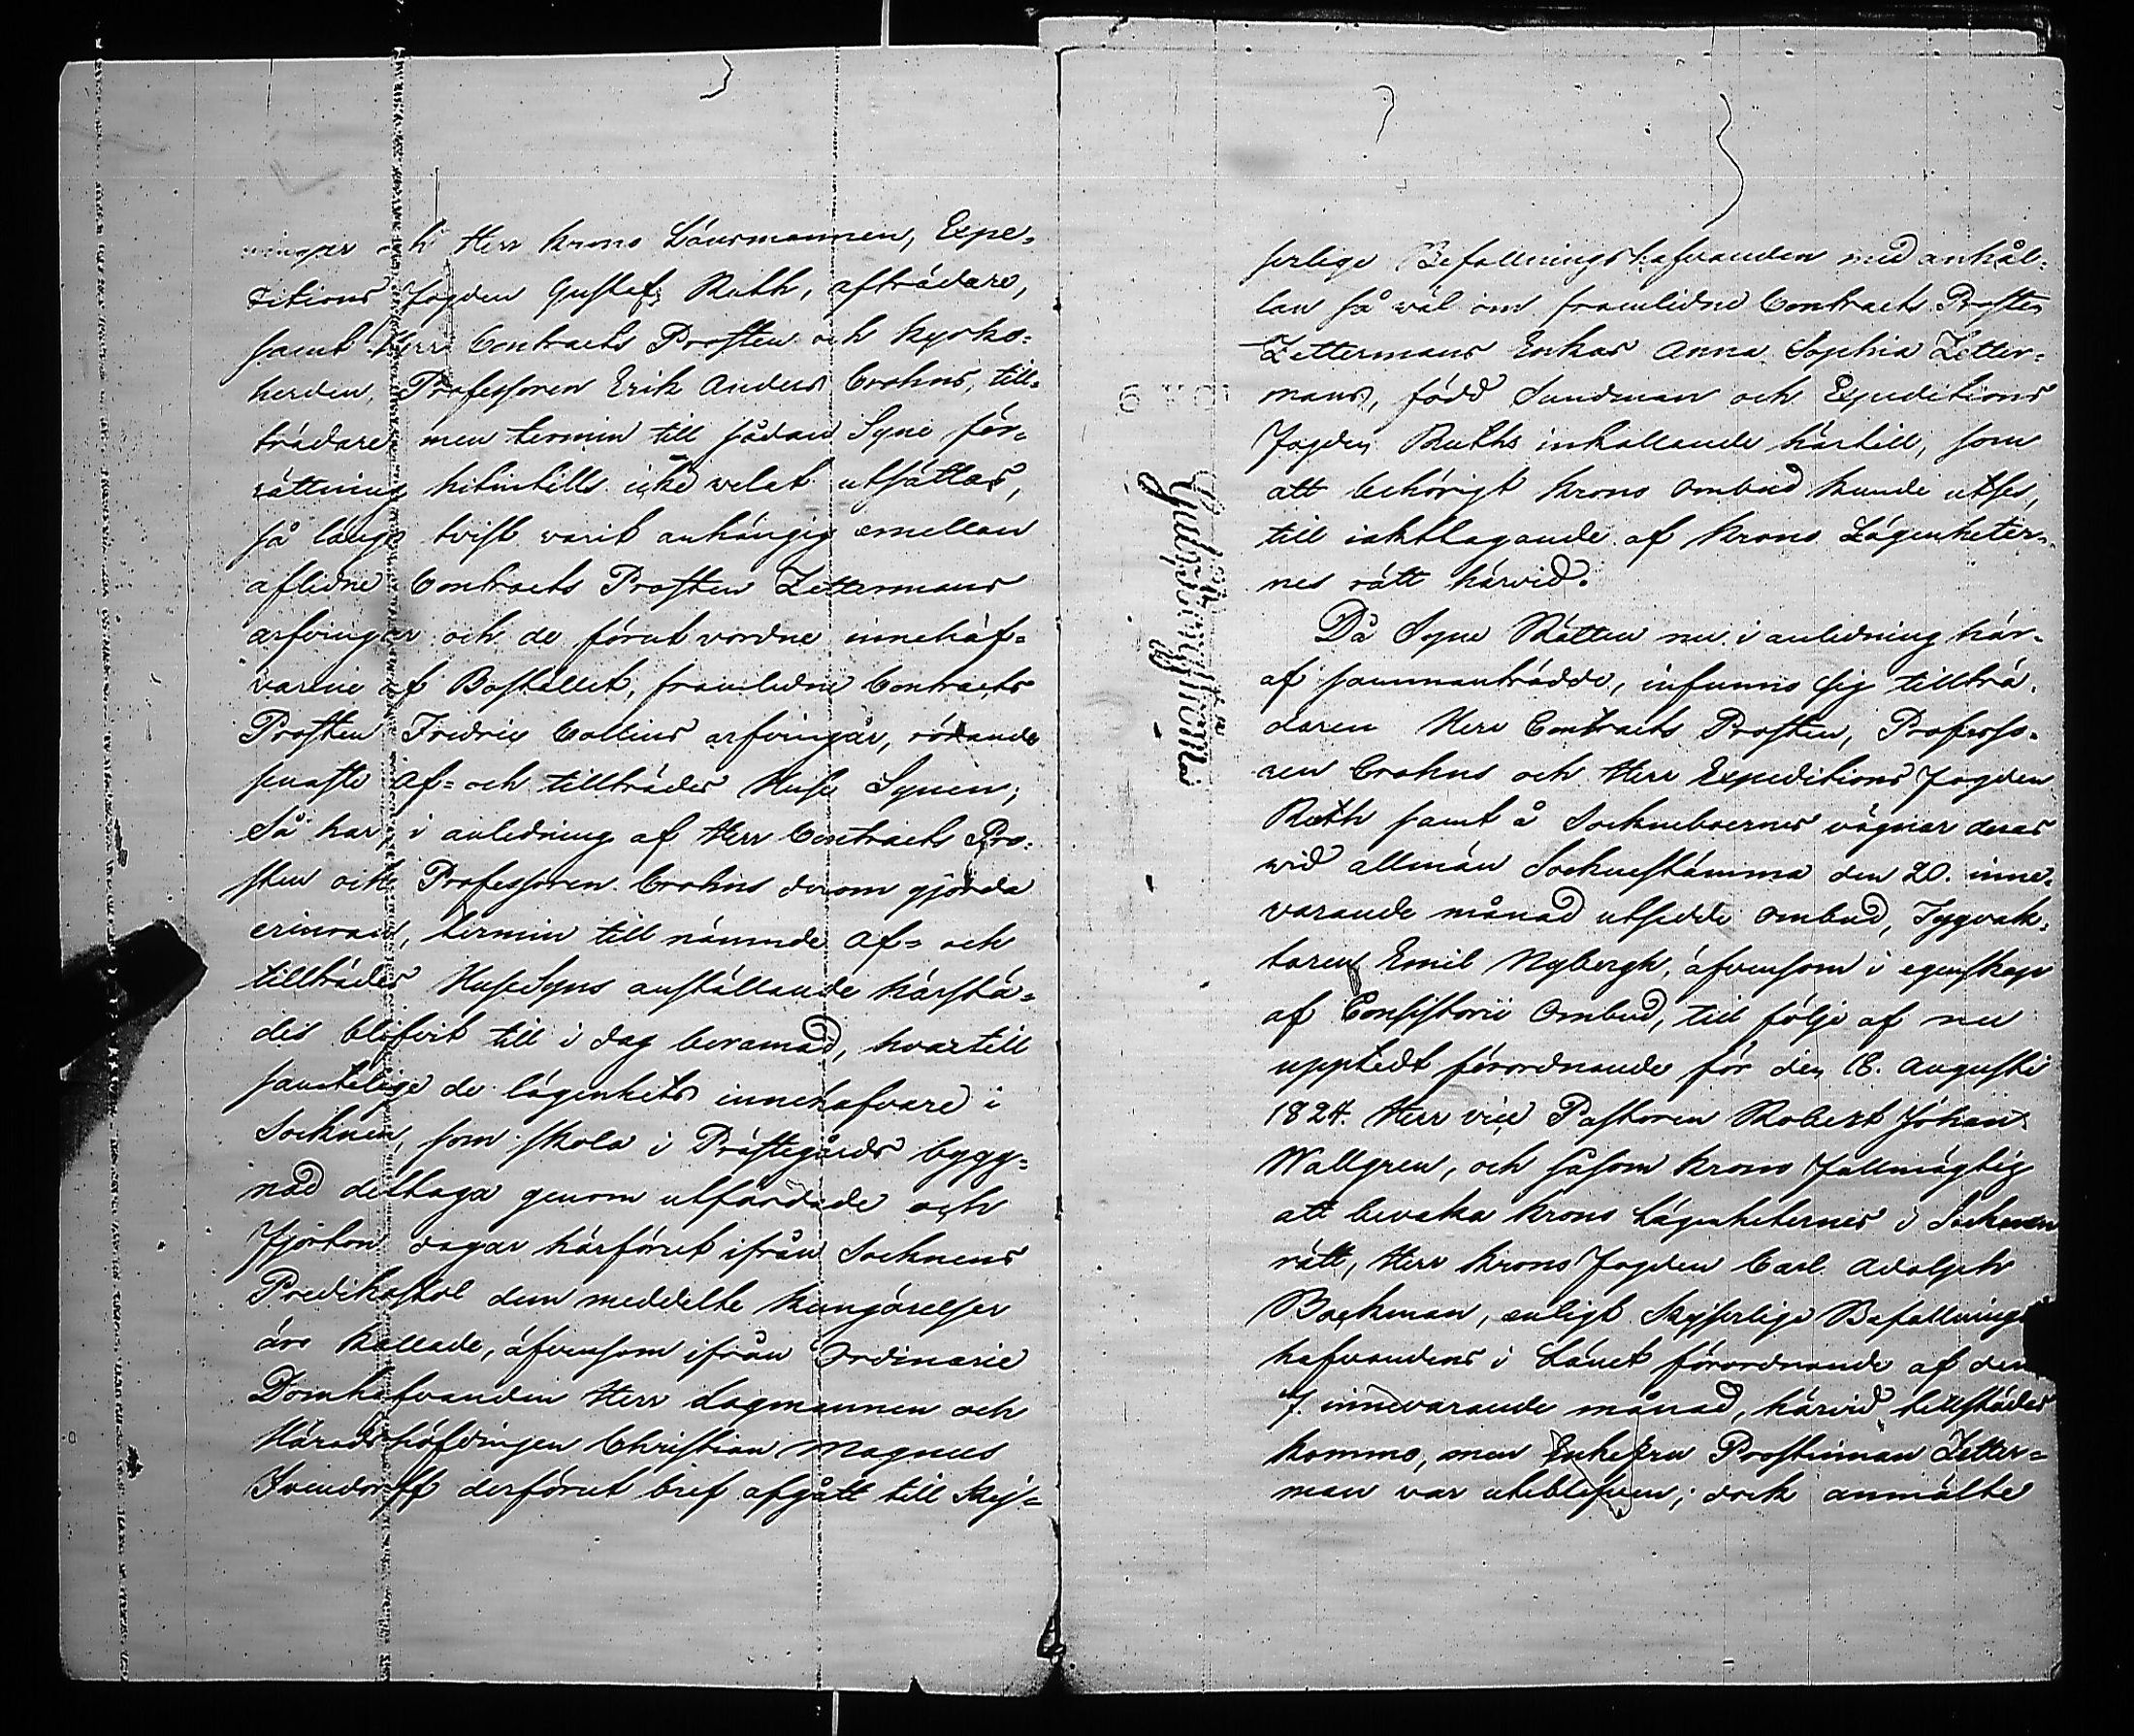 ningar och Herr Krono Länsmannen, Expe-
ditions Fogden Gustaf Ruth, afträdare,
samt Herr Contracts Prosten och Kyrko-
herden, Professoren Erik Anders Crohns, till-
trädare men termin till sådan Syne för-
rättning hitintills icke velat utsättas,
så länge tvist varit anhängig emellan
aflidne Contracts Prosten Zettermans
arfvingar och de förut vordne innehaf-
varene af Bostället, framlidne Contracts
Prosten Fredric Collins arfvingar, rörande
senaste af- och tillträdes Huse Synen;
Så har, i anledning af Herr Contracts Pro-
sten och Professoren Crohns derom gjorda
erinran, termin till nämnde af- och
tillträdes HuseSyns anställande härstä-
des blifvit till i dag beramad, hvartill
samtelige de lägenhets innehafvare i
Socknen, som skola i Prästegårds bygg-
nad deltaga genom utfärdade och
fjorton dagar härförut ifrån Socknens
Predikostol dem meddelte kungörelser
äro kallade, äfvensom ifrån Ordinarie
Domhafvanden Herr Lagmannen och
Häradshöfdingen Christian Magnus
Ivendorff derförut bref afgått till Kej-
serlige Befallningshafvanden med anhål-
lan så väl om framlidne Contracts Prosten
Zettermans Enkas Anna Sophia Zetter-
mans, född Sundman och Expeditions
Fogden Ruths inkallande härtill, som
att behörigt Krono Ombud kunde utses,
till iakttagande af Krono Lägenheter-
nes rätt härvid.
Då Syne Rätten nu i anledning här-
af sammanträdde, infunno sig tillträ-
daren Herr Contracts Prosten, Professo-
ren Crohns och Herr Expeditions Fogden
Ruth samt å Sockneboernes vägnar deras
vid allmän Sockneställma den 20. inne-
varande månad utsedde ombud, Tygvak-
taren Emil Nybergh, äfvensom i egenskap
af Consistorii Ombud, till följe af nu
uppteddt förordnande för den 18. Augusti
1824. Herr vice Pastoren Robert Johan
Wallgren, och såsom Krono fullmägtig
att bevaka Krono Lägenheternes i Socknen
rätt, Herr Krono Fogden Carl Adolph
Boehman, enligt Kejserlige Befallnings
hafvandens i Länet förordnande af den
7. innevarande månad, härvid tillstädes
kommo, men Enkefru Prostinnan Zetter-
man var uteblifven; dock anmälte